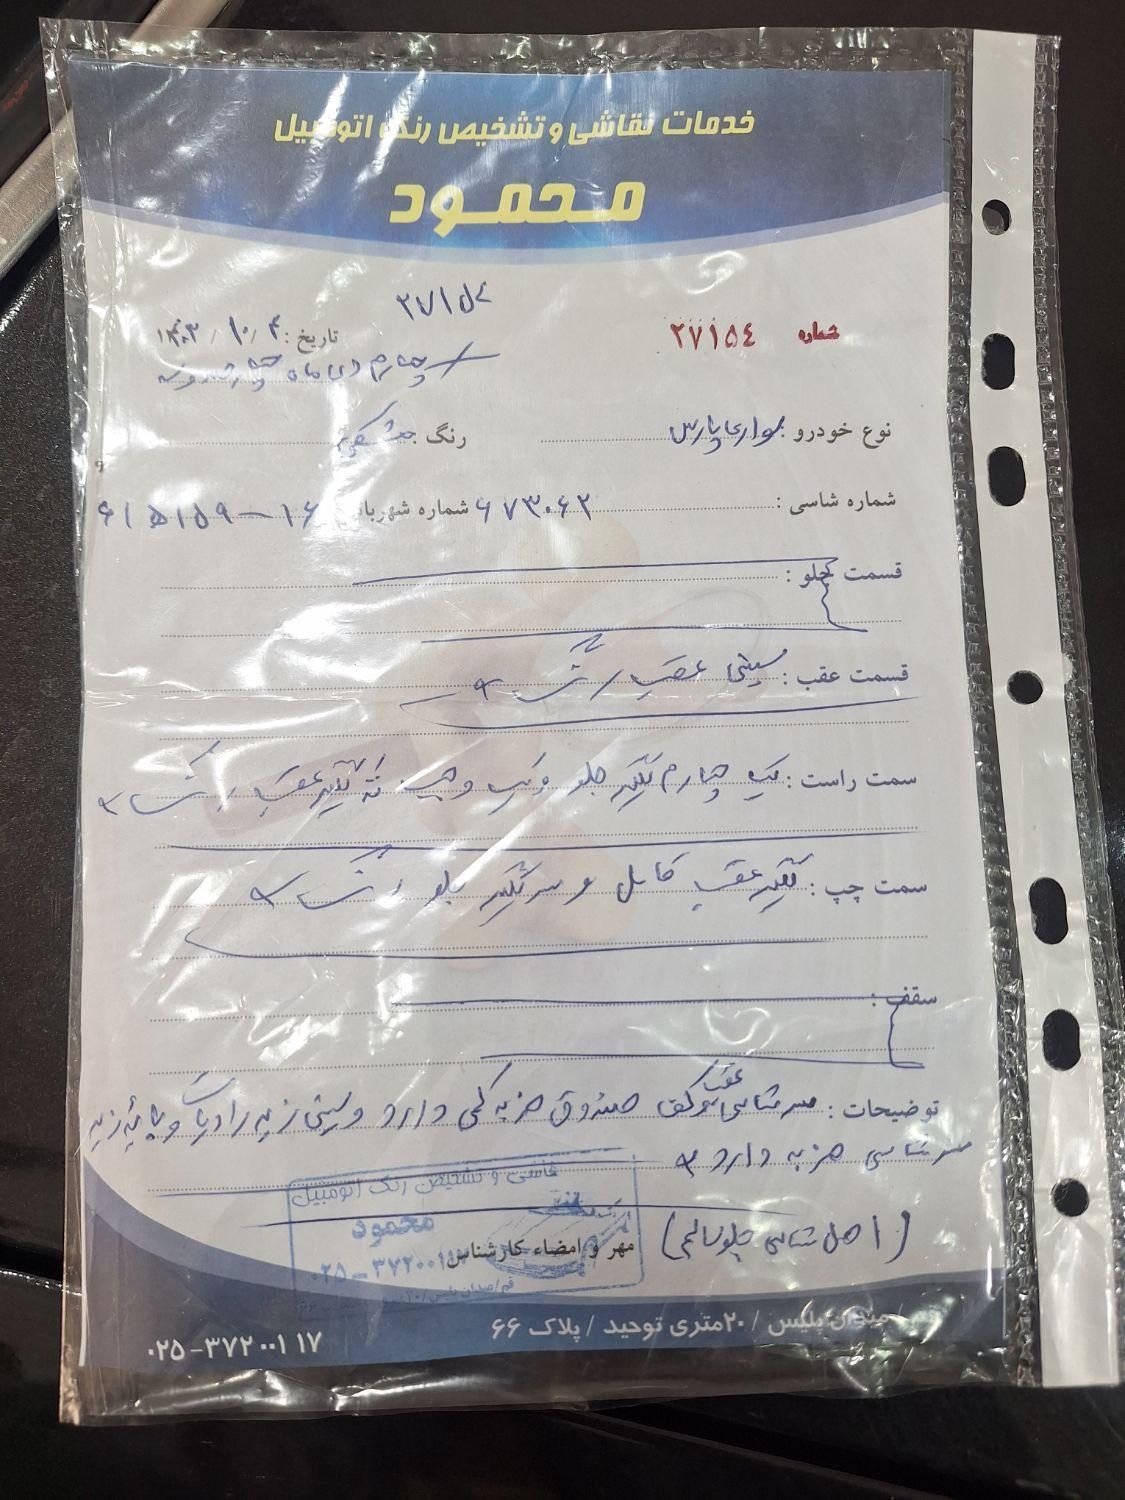 خدمات نقاشی و تشخیص رنگ اتومبیل
محمود
شماره ۲۷۱۵۴
تاریخ : ۱۴۰۳/۱۰/۴
چهارم دی ماه چهارشنبه
نوع خودرو : سواری پارس رنگ مشکی
شماره شاسی : ۶۷۳۰۶۲ شماره شهربانی ۱۶ – ۶۱۵۱۵۹
قسمت جلو :
قسمت عقب : سینی عقب رنگ شده
سمت راست : یک چهارم گلگیر جلو و یک وجب ته گلگیر عقب رنگ شده
سمت چپ : گلگیر عقب کامل و سر گلگیر جلو رنگ شده
سقف :
توضیحات : سر شاسی عقب و کف صندوق ضربه کمی دارد و سینی زیر رادیات و پایه زیر
سر شاسی ضربه دارد
(اصل شاسی جلو سالم)
مهر و امضاء کارشناس
نقاشی و تشخیص رنگ اتومبیل
محمود
۰۲۵-۳۷۲۰۰۱۱۷
میدان پلیس / ۲۰متری توحید / پلاک ۶۶
۰۲۵-۳۷۲۰۰۱۱۷